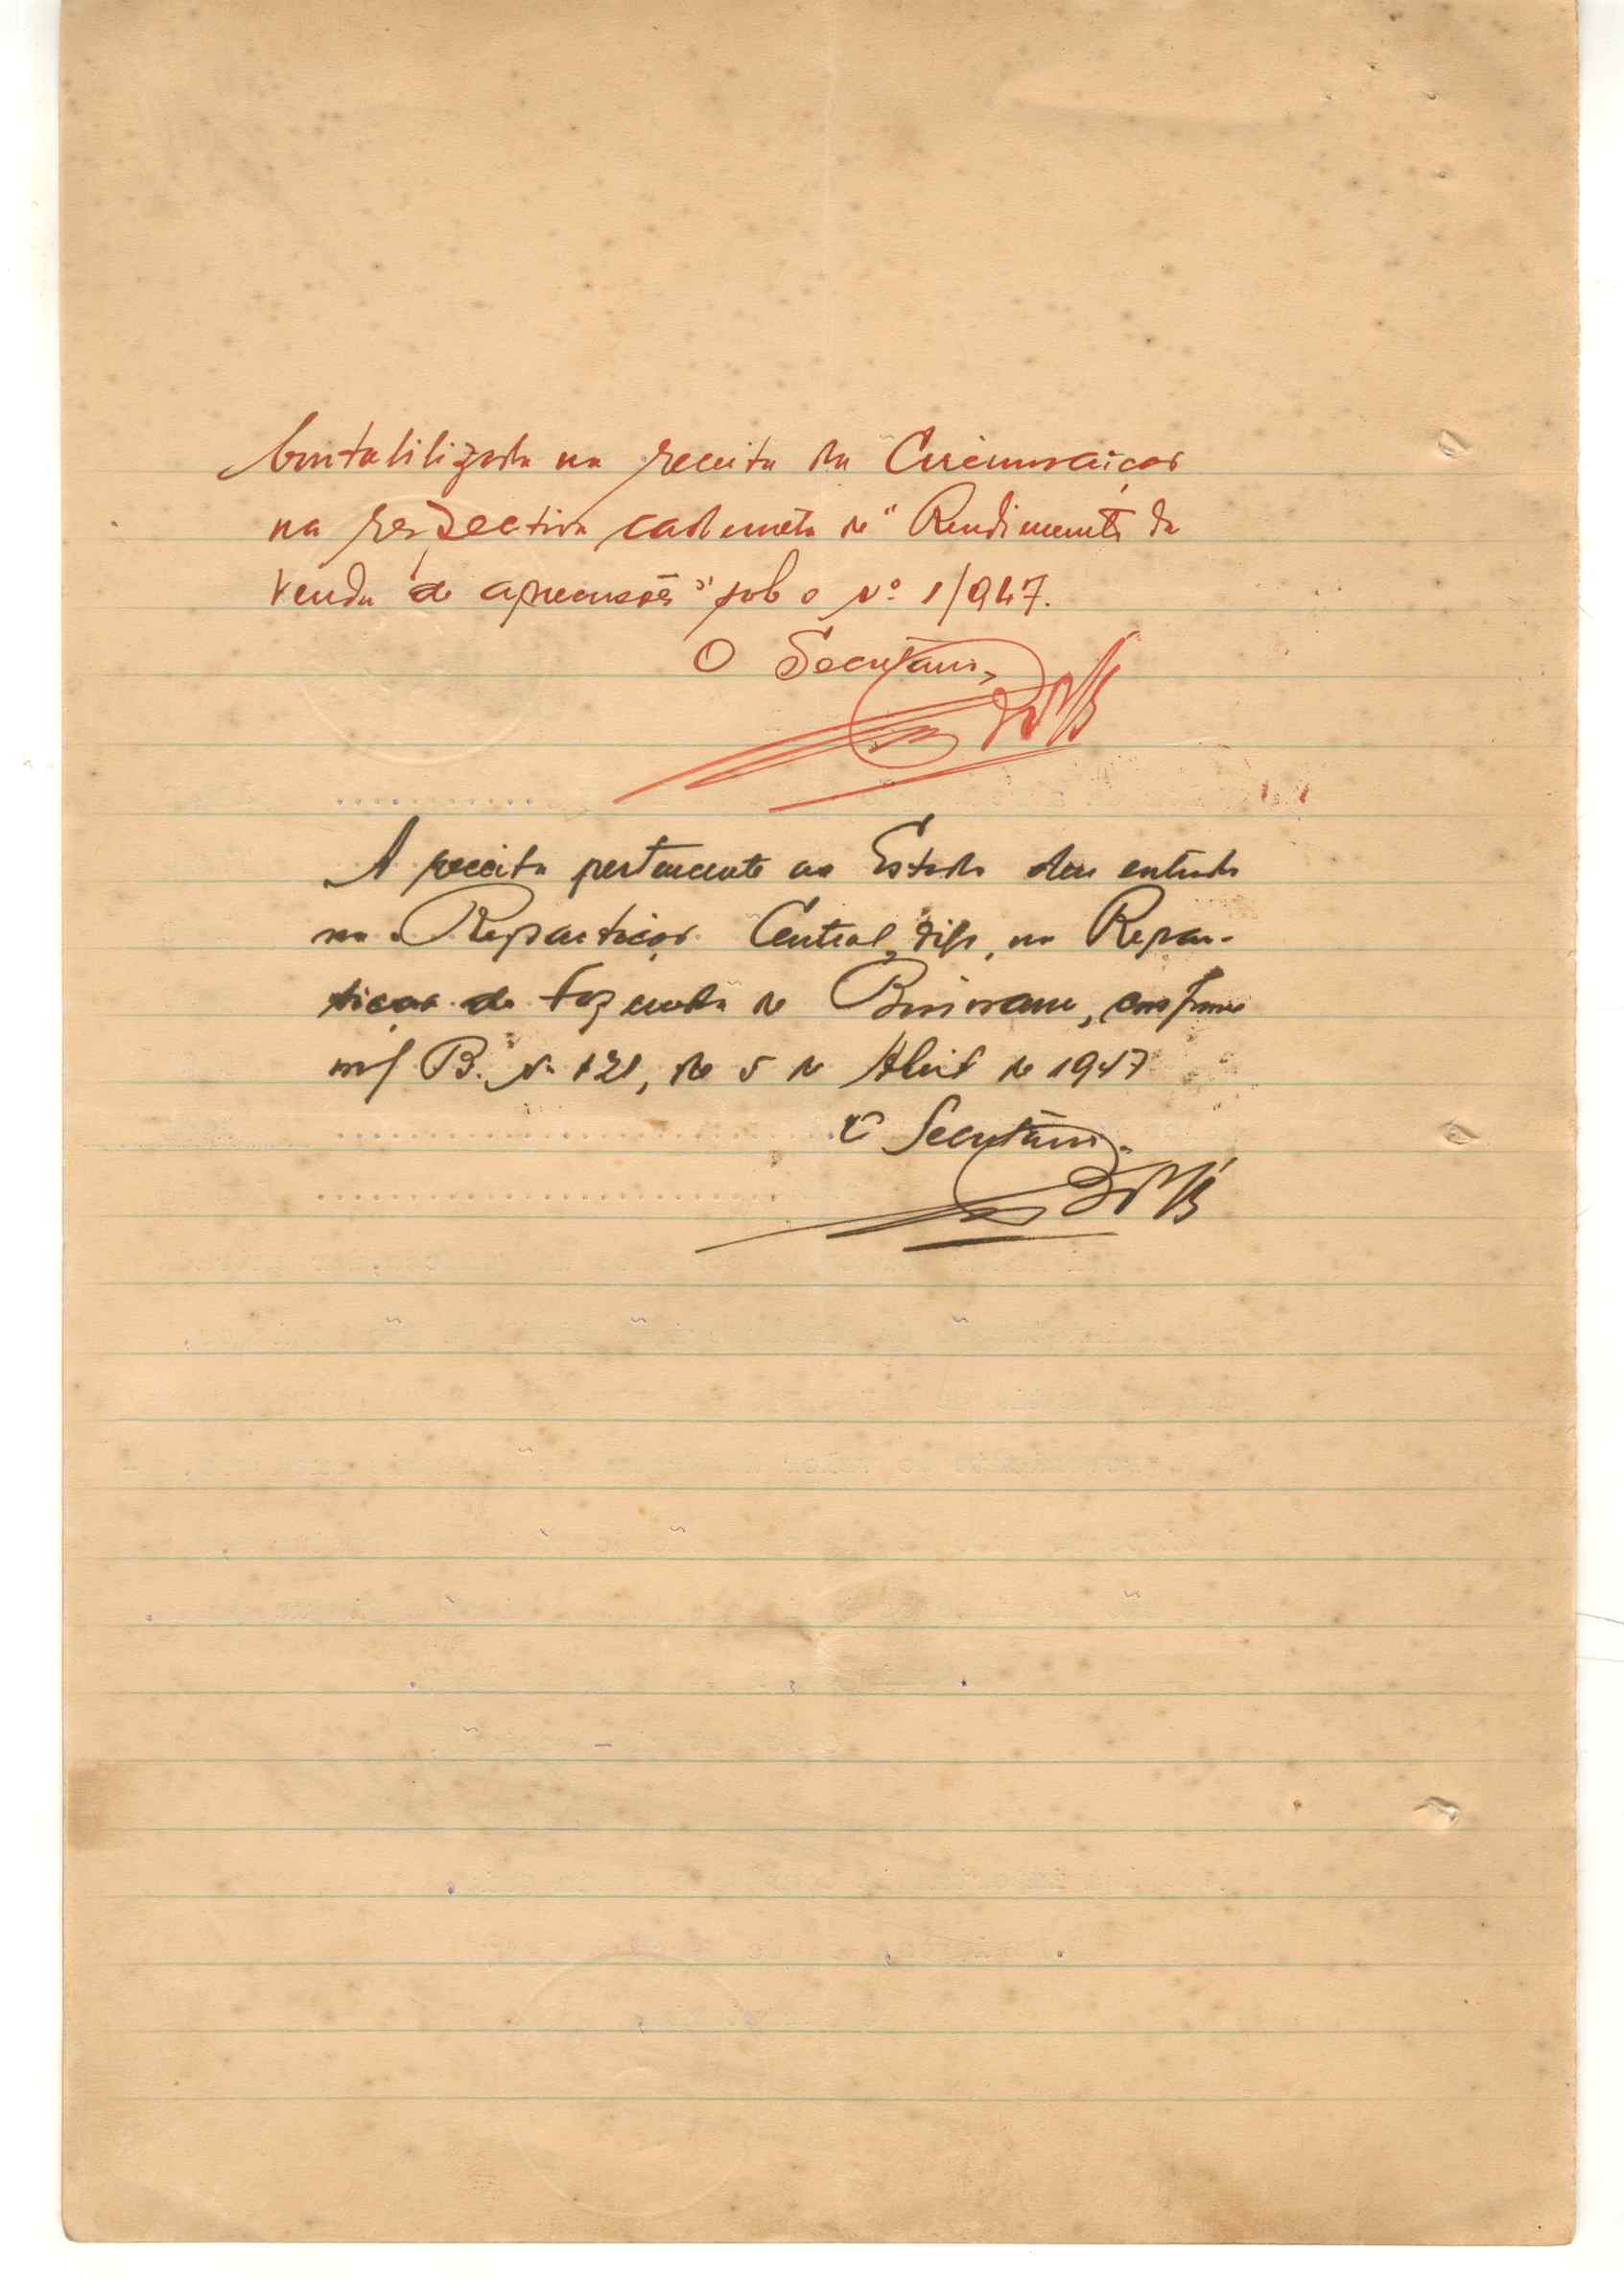 Contabilizada na receita da Circunscrição
na respectiva caderneta de "Rendimento da
Venda de apreensões" sob o Nº 1/947.
O Secretário,
A receita pertencente ao Estado deu entrada
na Repartição Central, digo, na Repar-
tição de Fazenda de, conforme
m/ B. Nº 121, de 5 de Abril de 1947
O Secretário.